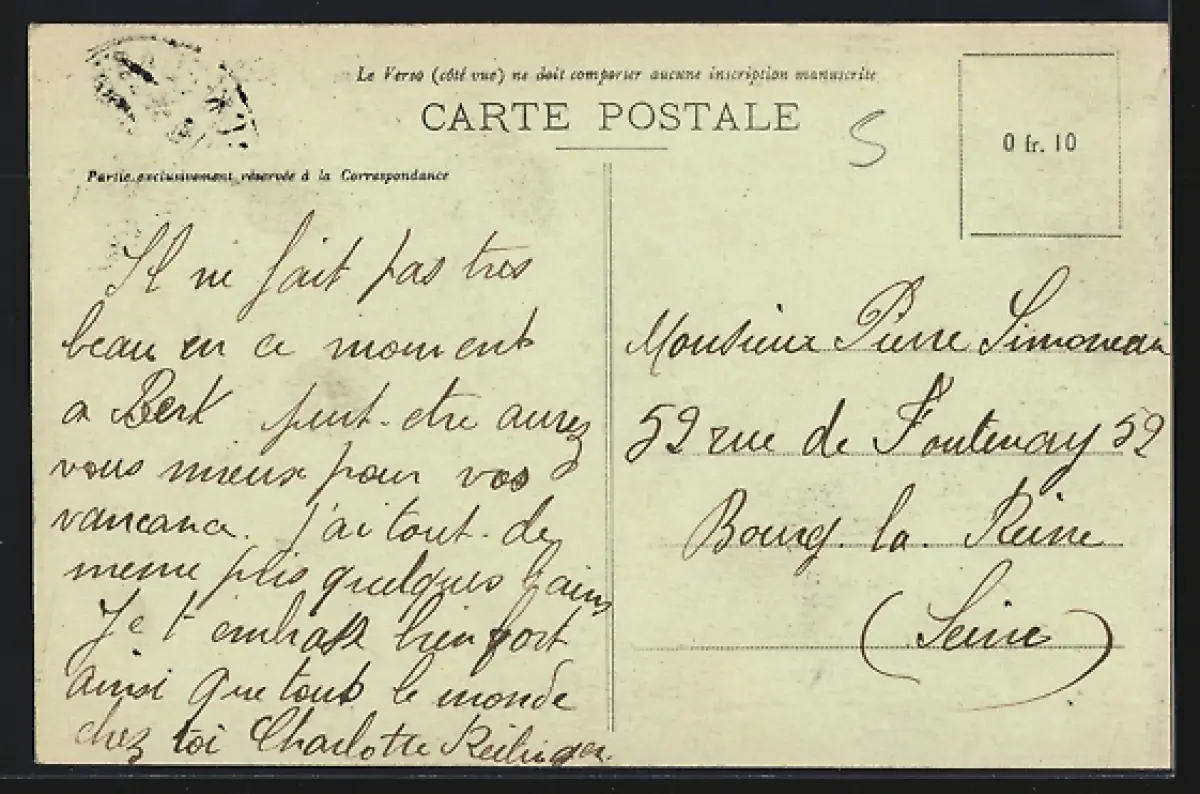 Le Verso (côté vue) ne doit comporter aucune inscription manuscrite
CARTE POSTALE
S
0 fr. 10
Partie exclusivement réservée à la Correspondance
Il ne fait pas tres
beau en ce moment
a Berk peut-etre aurez
vous mieux pour vos
vancance. j'ai tout-de
meme pris quelques bains
Je t'embrasse bien fort
ainsi que tout le monde
chez toi Charlotte
Monsieur Pierre Simoneau
52 rue de Fontenay 52
Bourg. la. Reine
(Seine)